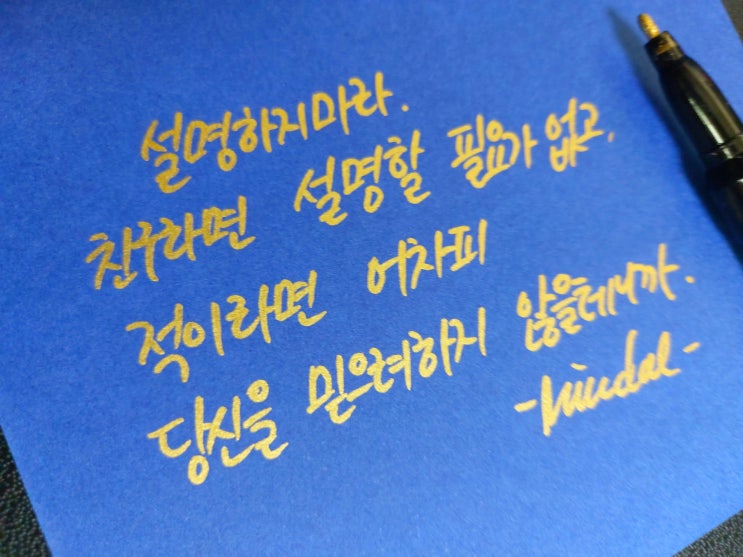 설명하지마라.
친구라면 설명할 필요가 없고,
적이라면 어차피
당신을 믿으려하지 않을테니까.